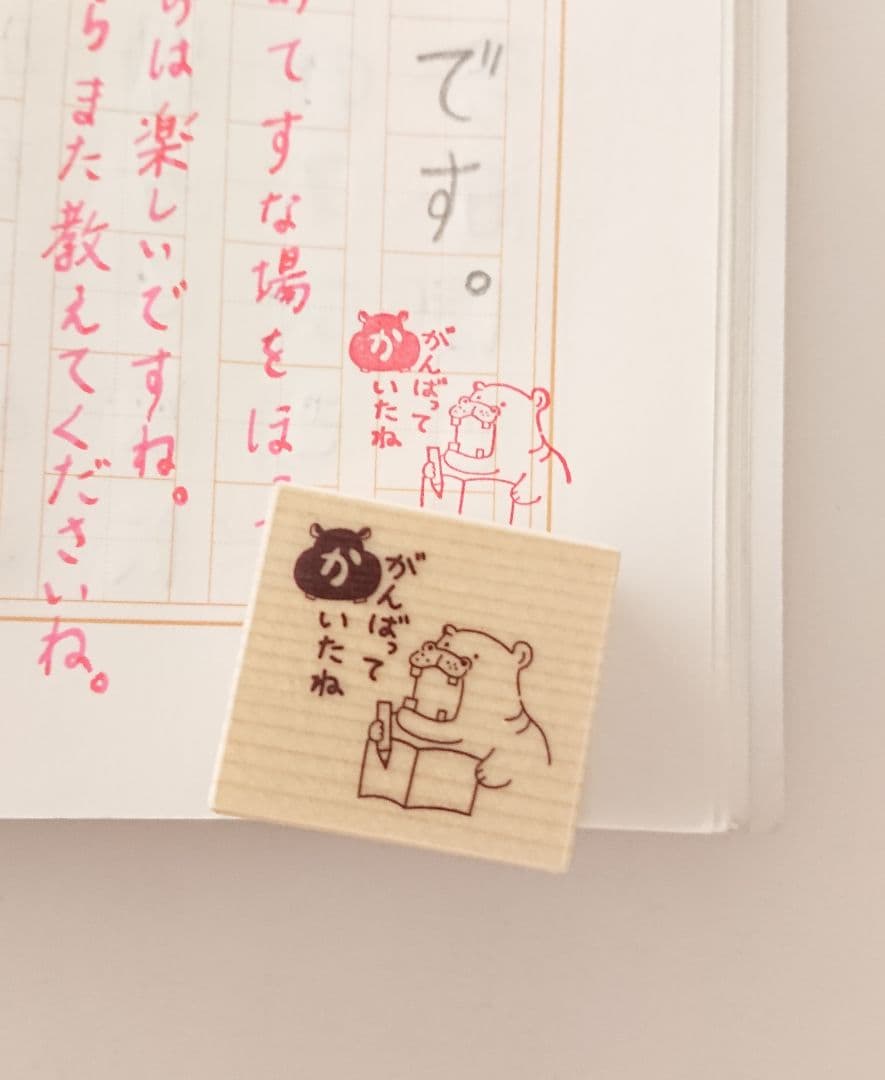 です。
がんばって
かいたね
てすな場をほ
は楽しいですね。
らまた教えてくださいね。
がんばって
かいたね